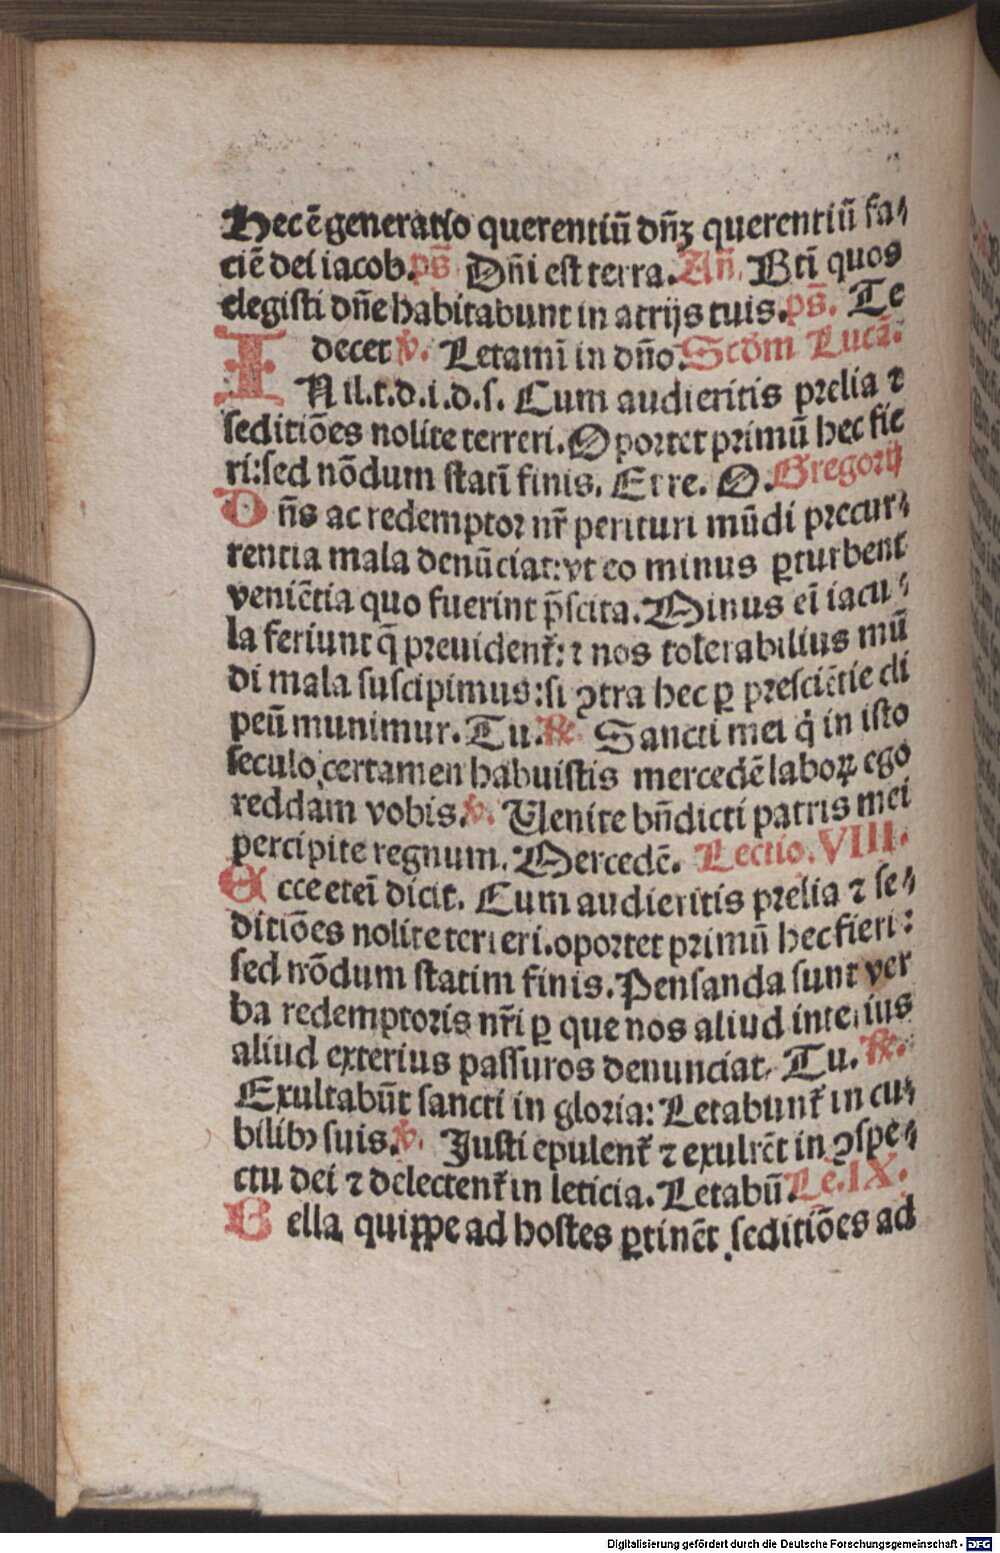 Hec ē generatio querentiū dn̄ꝫ querentiū fa⸗
ciē dei iacob. ps̄. Dn̄i est terra. An̄. Btī quos
elegisti dn̄e habitabunt in atrijs tuis. ps̄. Te
decet ℣. Letamī in dn̄o. Scd̄m Lucā.
IN il.t.d.i.d.s. Cum audieritis prelia ⁊
seditiōes nolite terreri. Oportet primū hec fie
ri: sed nōdum statī finis. Et re. O. Gregorij
Dn̄s ac redemptor nr̄ perituri mūdi precur⸗
rentia mala denūciat: vt eo minus ꝑturbent
veniētia quo fuerint p̄scita. Minus eī iacu⸗
la feriunt q̄ preuident᷑: ⁊ nos tolerabilius mū
di mala suscipimus: si ꝯtra hec ꝑ presciētie cli
peū munimur. Tu. ℟. Sancti mei q̇ in isto
seculo certamen habuistis mercedē laboꝝ ego
reddam vobis. ℣. Venite bn̄dicti patris mei
percipite regnum. Mercedē. Lectio. VIII.
Ecce eteī dicit. Cum audieritis prelia ⁊ se⸗
ditiōes nolite terreri. oportet primū hec fieri:
sed nōdum statim finis. Pensanda sunt ver
ba redemptoris nr̄i ꝑ que nos aliud interius
aliud exterius passuros denunciat. Tu. ℟.
Exultabūt sancti in gloria: Letabunt᷑ in cu⸗
bilibꝰ suis. ℣. Justi epulent᷑ ⁊ exultēt in ꝯspe⸗
ctu dei ⁊ delectent᷑ in leticia. Letabū. Le. IX.
Bella quippe ad hostes ꝑtinēt seditiōes ad
Digitalisierung gefördert durch die Deutsche Forschungsgemeinschaft - DFG